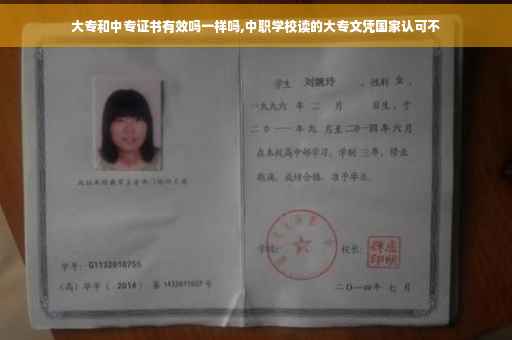 大专和中专证书有效吗一样吗,中职学校读的大专文凭国家认可不
学生 刘婉玲 ，性别 女 ，
一九九六 年 二 月 日生，于
二〇一一 年 九 月至 二〇一四 年 六 月
在本校高中部学习，学制 三 年，修业
期满，成绩合格，准予毕业。
学号： G1132010755
(高) 毕字 ( 2014 ) 第 1432011027 号
学校：
校长：
二〇一四年 七 月